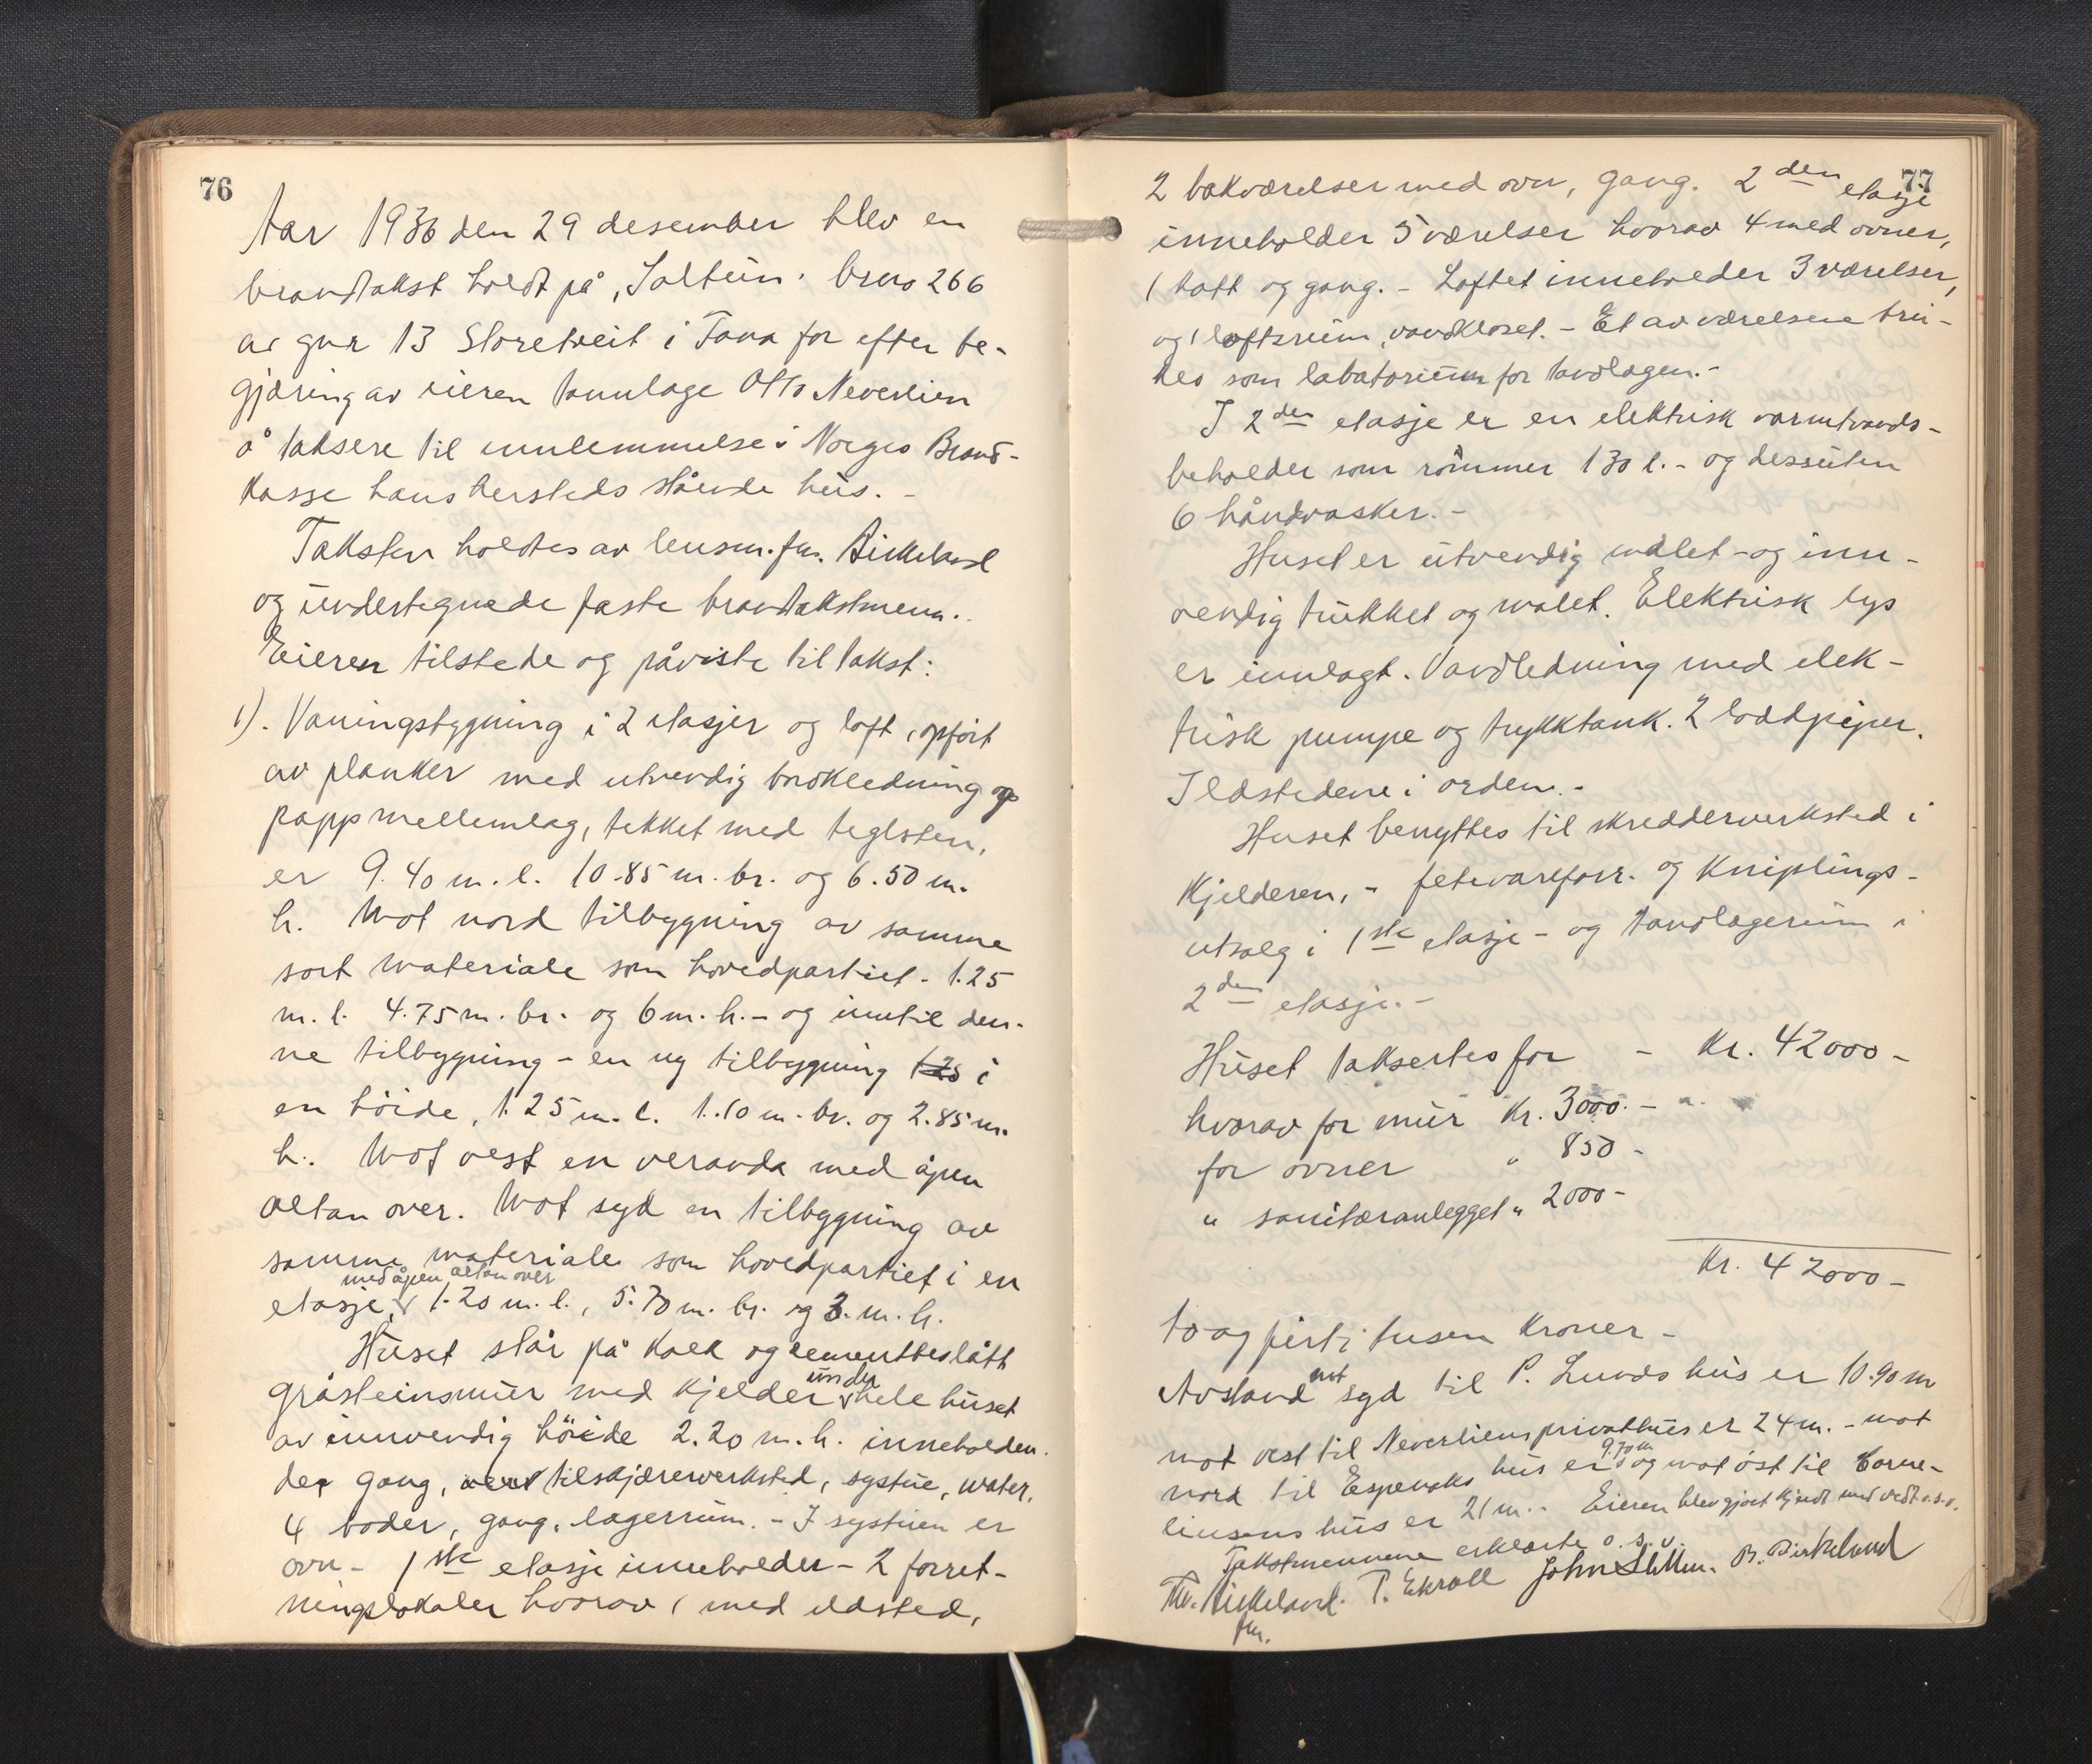 76
Aar 1936 den 29 desember blev en
brandtakst holdt på „Saltun" brno 266
av gnr 13 Storetveit i Fana for efter be-
gjæring av eieren tannlæge Otto Neverlien
å taksere til innlemmelse i Norges Brand-
kasse hans hersteds stående hus. -
Taksten holdtes av lensm. fm. Birkeland
og undertegnede faste brandtakstmenn..
Eieren tilstede og påviste til takst:
1). Vaningsbygning i 2 etasjer og loft, opført
av planker med utvendig bordkledning og
papp mellemlag, tekket med teglsten,
er 9.40 m. l. 10.85 m. br. og 6.50 m.
h. Mot nord tilbygning av samme
sort materiale som hovedpartiet - 1.25
m. l. 4.75 m. br. og 6 m. h. - og inntil den-
ne tilbygning - en ny tilbygning 1 25 i
en høide, 1.25 m. l. 1.10 m. br. og 2.85 m.
h. Mot vest en veranda med åpen
altan over. Mot syd en tilbygning av
samme materiale som hovedpartiet i en
med åpen altan over
etasje, 1.20 m. l., 5.70 m. br. og 3. m. h.
Huset står på kalk og cementbeslått
gråsteinsmur med kjelder under hele huset
av innvendig høide 2.20 m. h. inneholden-
der gang, tilskjærerverksted, systue, water,
4 boder, gang, lagerrum. - I systuen er
ovn - 1ste etasje inneholder - 2 forret-
ningslokaler hvorav 1 med ildsted,
77
2 bakværelser med ovn, gang. 2den etasje
inneholder 5 værelser hvorav 4 med ovner,
1 kott og gang. - Loftet inneholder 3 værelser,
og 1 loftsrum, vandkloset. - Et av værelsene bru-
kes som labatorium for tandlægen. -
I 2den etasje er en elektrisk varmtvands-
beholder som rømmer 130 l. - og dessuten
6 håndvasker. -
Huset er utvendig malet - og inn-
vendig trukket og malet. Elektrisk lys
er innlagt. Vandledning med elek-
trisk pumpe og trykktank. 2 loddpiper.
Ildstedene i orden. -
Huset benyttes til skredderverksted i
kjelderen, - fetevareforr. og kniplings-
utsalg i 1ste etasje - og tandlægerum i
2den etasje. -
Huset taksertes for - Kr. 42000 -
hvorav for mur Kr. 3000. -
for ovner " 850 -
" sanitæranlegget " 2000 -
Kr. 42000 -
to og førti tusen kroner -
Avstand mot syd til P. Lunds hus er 10.90 m
mot vest til Neverliens privathus er 24 m. - mot
nord til Espevoks hus er 9.70 m og mot øst til Corne-
liusens hus er 21 m. - Eieren blev gjort kjendt med vedt. o.s.v.
Takstmennene erklærte o. s. v.
Th. Birkeland. P. Ekroll John B. Birkeland
fm.